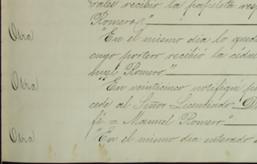 recibir la papeleta
Romero"
Otra "En el mismo día lo
cuyo portero recibió la cédu
Romero"
Otra "En veintinueve notifiqué
cede al Señor Licenciado
fé = Manuel Romero"
Otra "En el mismo día enterado